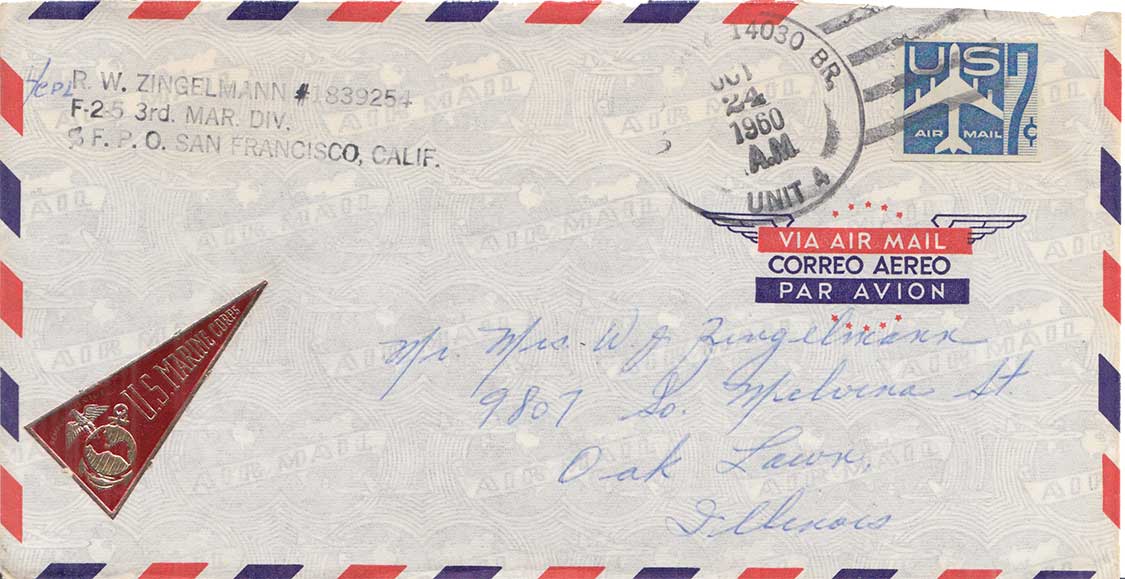 R. W. ZINGELMANN #1839254
F-2-5 3rd. MAR. DIV.
% F. P. O. SAN FRANCISCO, CALIF.
14030 BR.
OCT
24
1960
A.M.
UNIT 4
US
AIR MAIL
7¢
VIA AIR MAIL
CORREO AEREO
PAR AVION
U.S. MARINE CORPS
Mr. Mrs. W J Zingelmann
9807 So. Melvina St.
Oak Lawn,
Illinois
AIR MAIL